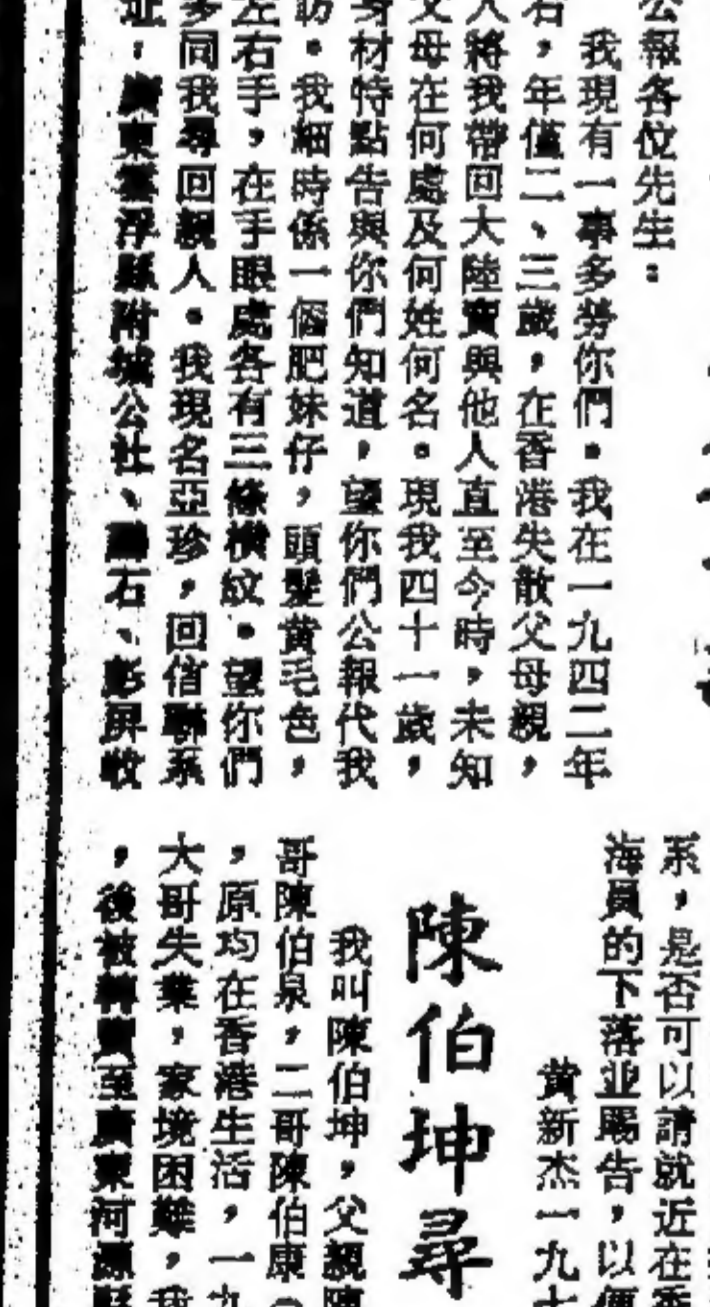 公報各位先生：
我現有一事多勞你們。我在一九四二年
右，年僅二、三歲，在香港失散父母親，
人將我帶回大陸賣與他人直至今時，未知
父母在何處及何姓何名。現我四十一歲，
身材特點告與你們知道，望你們公報代我
訪。我細時係一個肥妹仔，頭髮黃毛色，
左右手，在手眼處各有三條橫紋。望你們
多同我尋回親人。我現名亞珍，回信聯系
址，廣東雲浮縣附城公社、石、彭屏收
系，是否可以請就近在香
海員的下落並賜告，以便
黃新杰一九七
陳伯坤尋
我叫陳伯坤，父親陳
哥陳伯泉，二哥陳伯康
，原均在香港生活，一九
大哥失業，家境困難，我
，後被轉賣至廣東河源縣